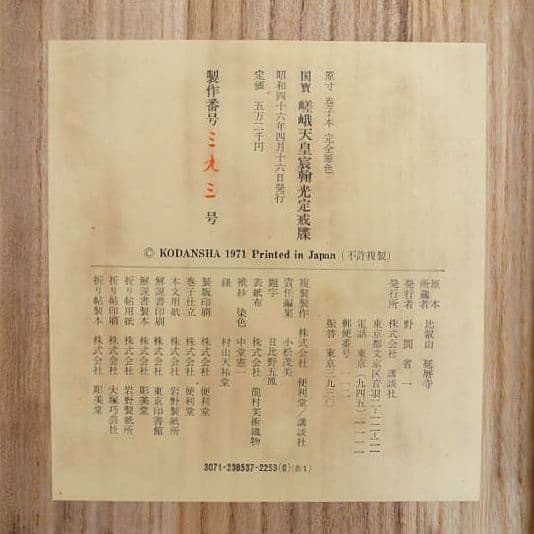 原寸 巻子本 完全原色
国寶 嵯峨天皇宸翰 光定戒牒
昭和四十六年四月十六日発行
定価 五万二千円
製作番号 三九三 号
© KODANSHA 1971 Printed in Japan (不許複製)
原本
所蔵者 比叡山 延暦寺
発行者 野間省一
発行所 株式会社 講談社
東京都文京区音羽二-一二-二一
電話 東京(九四五)一一一一
郵便番号 一一二
振替 東京三九三〇
複製製作 株式会社 便利堂/講談社
責任編集 小松茂美
題字 日比野五鳳
表紙布 株式会社 龍村美術織物
袱紗 染色 中堂憲一
紐 村山天祐堂
製版印刷 株式会社 便利堂
巻子仕立 株式会社 便利堂
本文用紙 株式会社 岩野製紙所
解説書印刷 株式会社 東京印書館
解説書製本 株式会社 彫美堂
折り帖用紙 株式会社 岩野製紙所
折り帖印刷 株式会社 大塚巧芸社
折り帖製本 株式会社 彫美堂
3071-230537-2253(0)